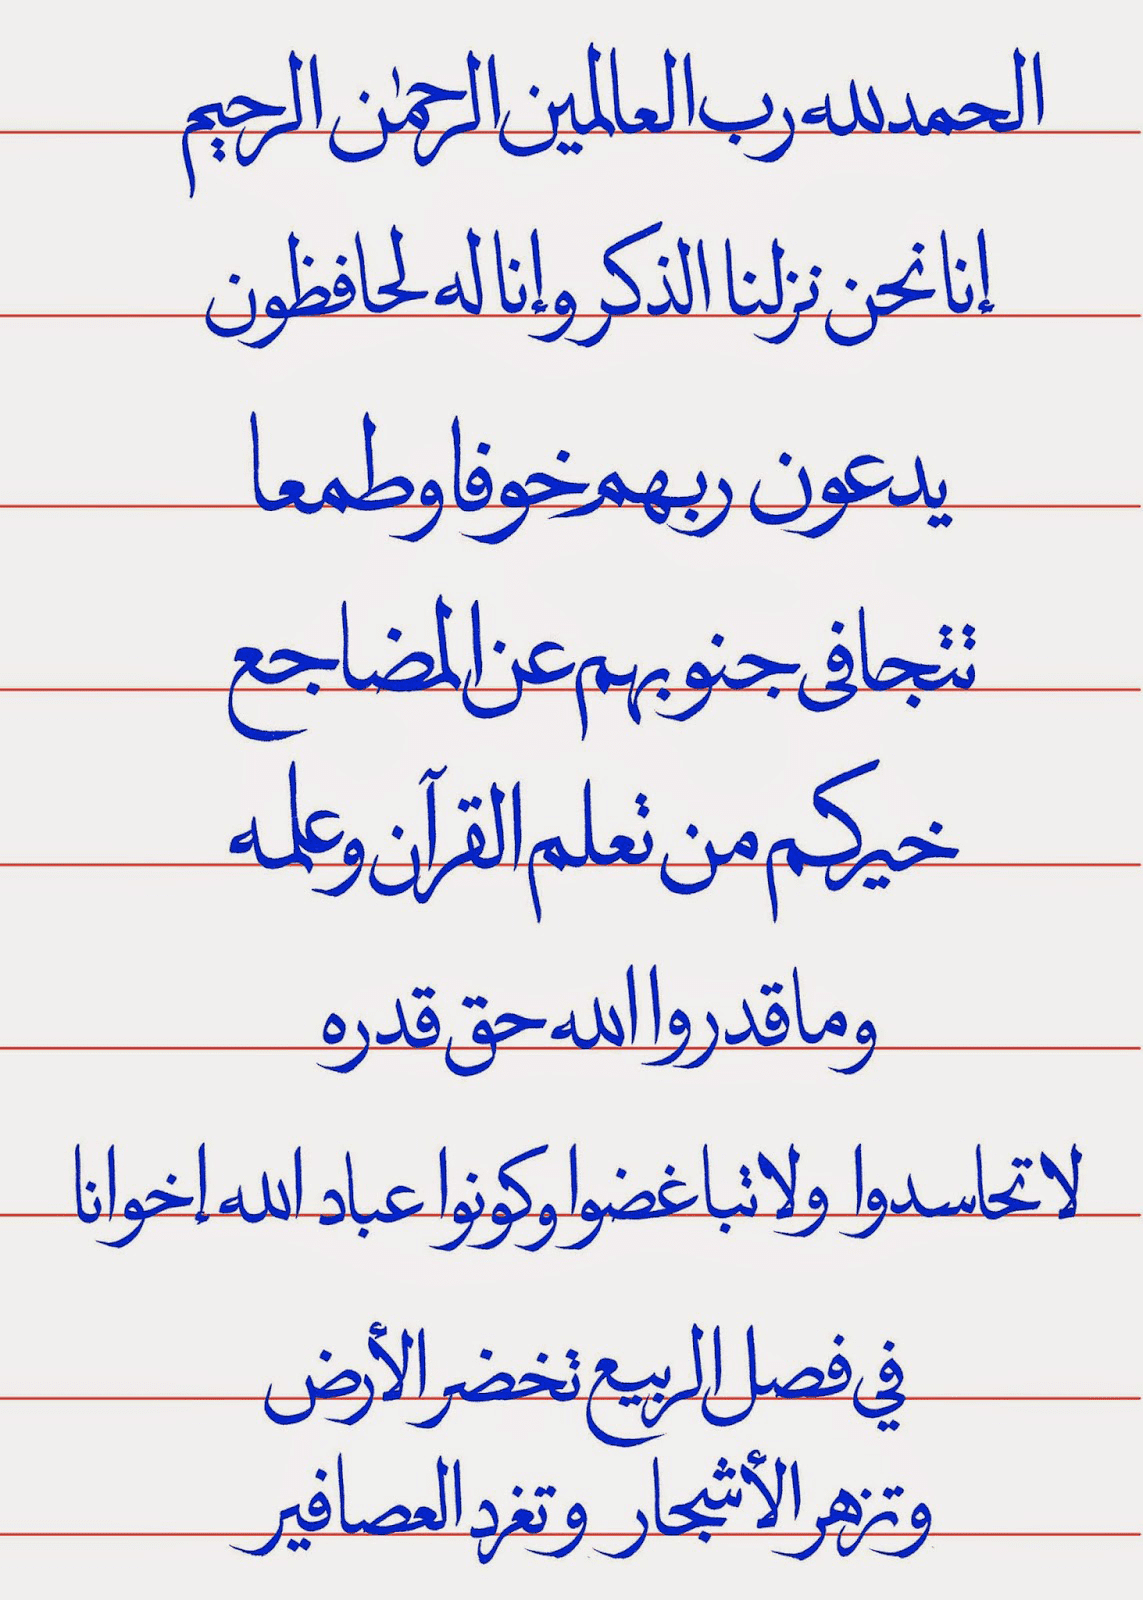 الحمد لله رب العالمين الرحمٰن الرحيم
إنا نحن نزلنا الذكر وإنا له لحافظون
يدعون ربهم خوفا وطمعا
تتجافى جنوبهم عن المضاجع
خيركم من تعلم القرآن وعلمه
وما قدروا الله حق قدره
لا تحاسدوا ولا تباغضوا وكونوا عباد الله إخوانا
في فصل الربيع تخضر الأرض
وتزهر الأشجار وتغرد العصافير